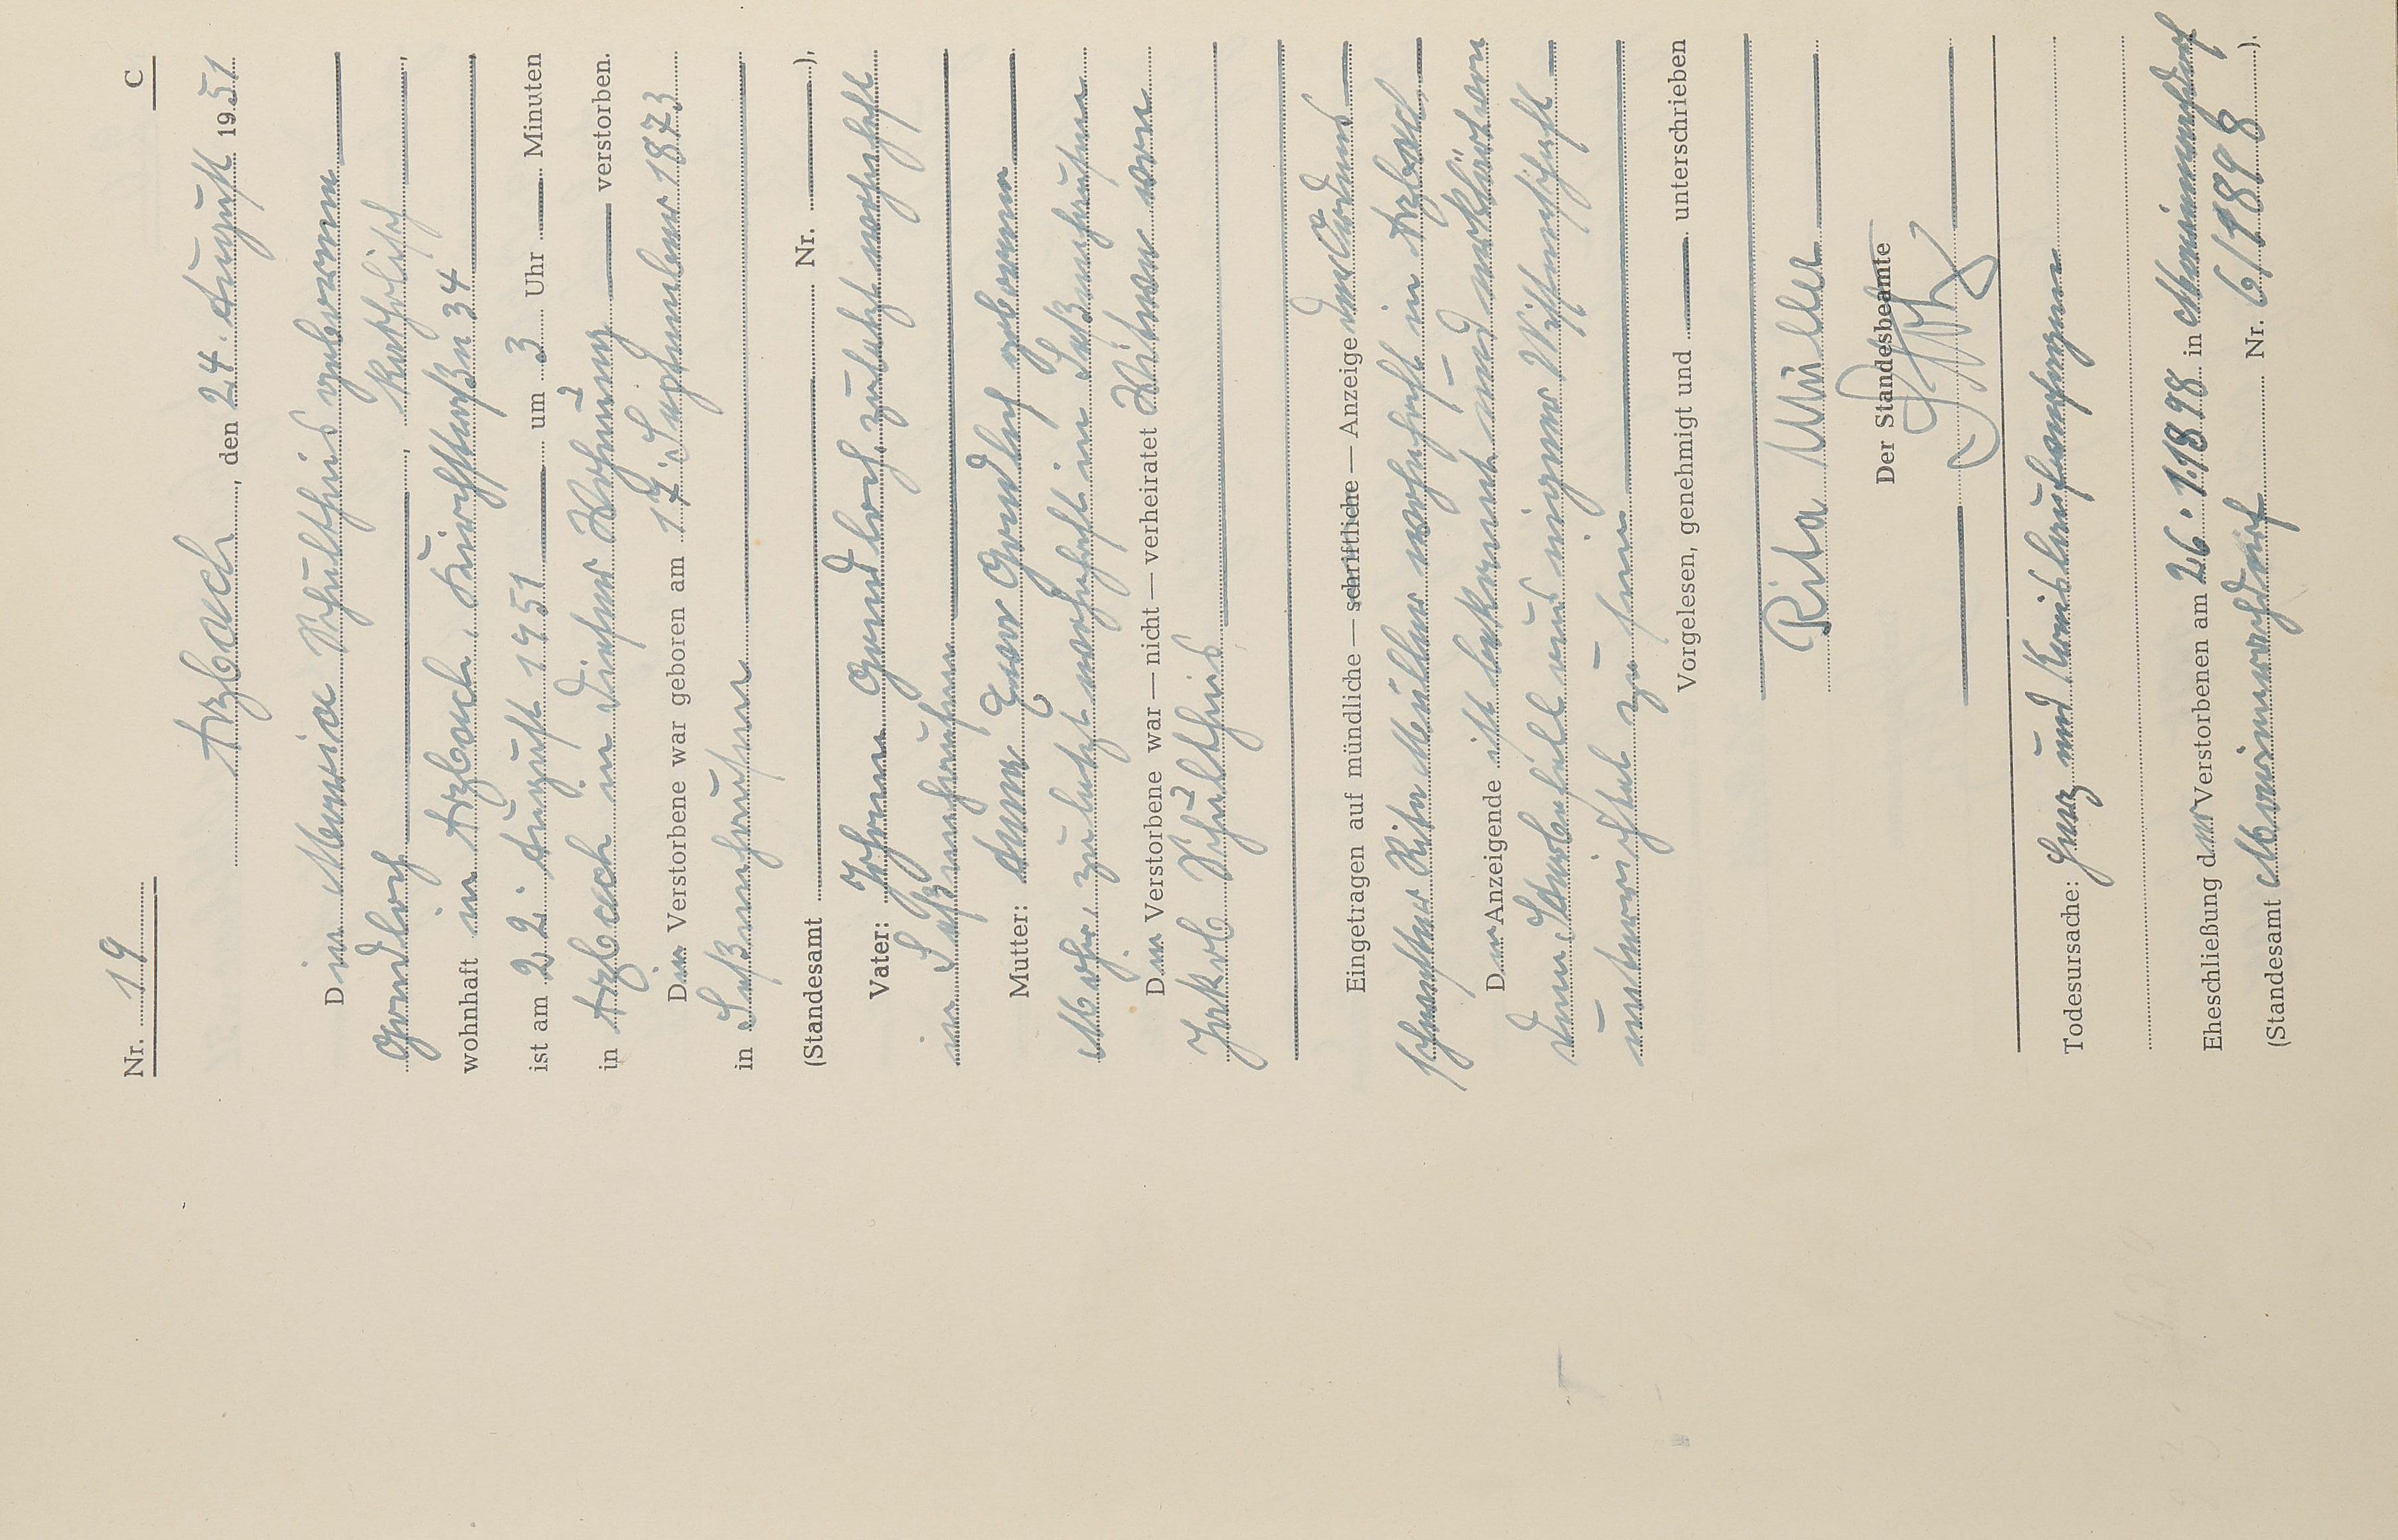 Nr. 19 C
Arzbach, den 24. August 1951
Die Maria Schultheis geborenen
Gondloch, katholisch,
wohnhaft in Arzbach, Kirchstraße 34
ist am 22. August 1951 um 3 Uhr — Minuten
in Arzbach in dieser Wohnung verstorben.
Die Verstorbene war geboren am 17. September 1873
in
(Standesamt Nr. ),
Vater: Johann Gondloch, zuletzt wohnhaft
in
Mutter: Anna Eva Gondloch geborenen
zuletzt wohnhaft in
Die Verstorbene war — nicht — verheiratet Witwe von
Jakob Schultheis
Eingetragen auf mündliche — schriftliche — Anzeige der Ordens
schwester Rita Müller wohnhaft in Arzbach
Die Anzeigende ist bekannt und erklärte von
dem Sterbefall aus eigener Wissenschaft
unterrichtet zu sein
Vorgelesen, genehmigt und — unterschrieben
Rita Müller
Der Standesbeamte
Todesursache: Herz und Kreislaufversagen
Eheschließung der Verstorbenen am 26.1.1898 in
(Standesamt Nr. 6/1898).